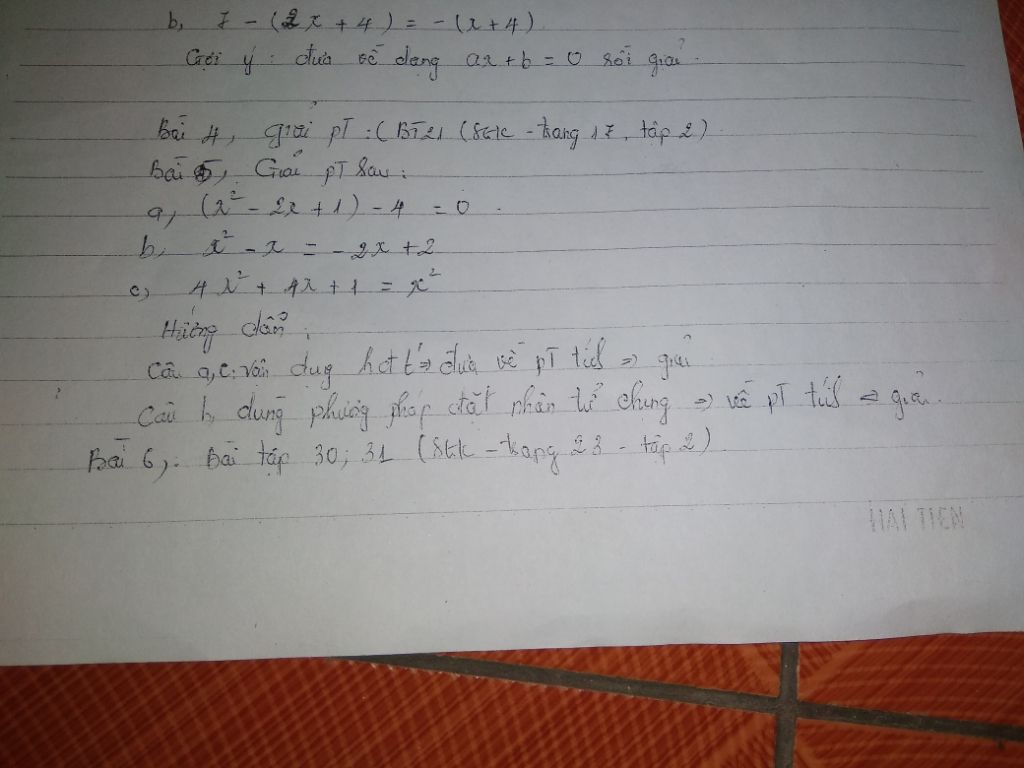 b, 7 - (2x + 4) = - (x + 4)
Gợi ý : đưa về dạng ax + b = 0 rồi giải.
Bài 4, giải pT : (BT21 (SGK - trang 17, tập 2)
Bài 5, Giải pT sau :
a, (x² - 2x + 1) - 4 = 0.
b, x² - x = - 2x + 2
c, 4x² + 4x + 1 = x²
Hướng dẫn :
Câu a, c: vận dụg hđt ⇒ đưa về pT tích ⇒ giải
Câu b, dùng phương pháp đặt nhân tử chung ⇒ về pT tích ⇒ giải.
Bài 6, : Bài tập 30; 31 (SGK - trang 23 - tập 2)
HAI TIEN